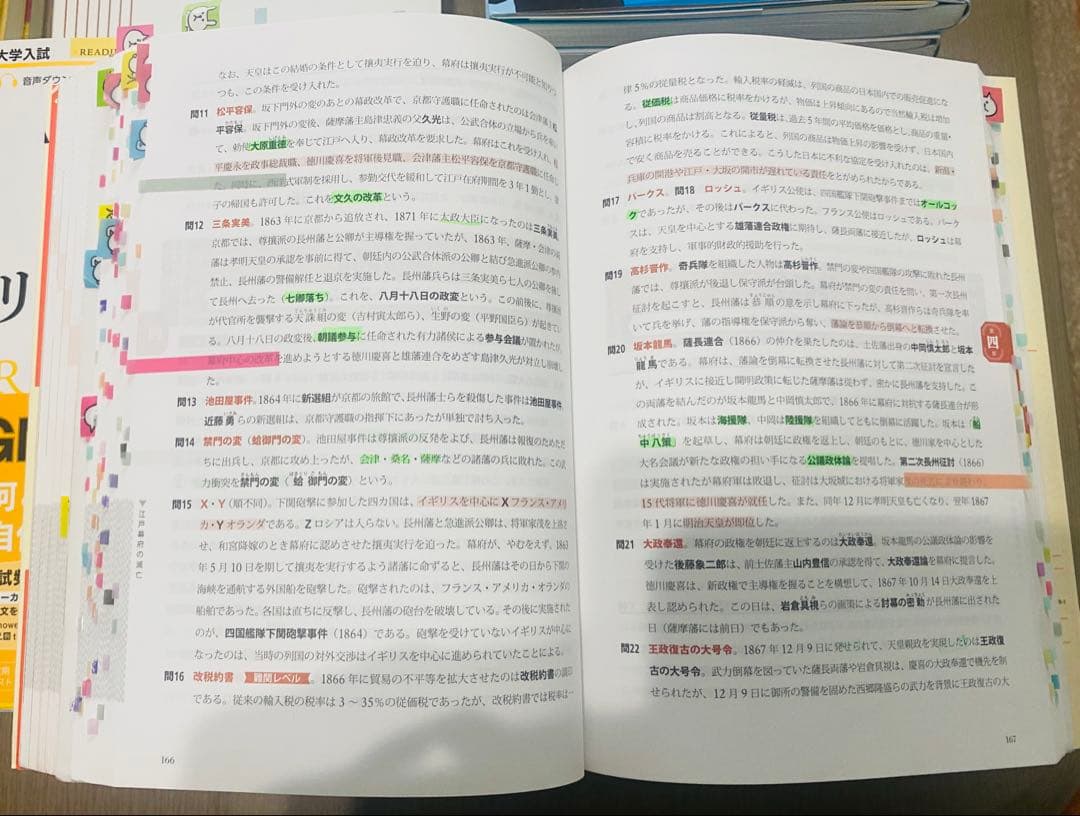 大学入試
READI
音声ダウン
なお、天皇はこの結婚の条件として攘夷実行を迫り、幕府は攘夷実行が不可能と知りつ
つも、この条件を受け入れた。
問11 松平容保。坂下門外の変のあとの幕政改革で、京都守護職に任命されたのは会津藩主松
平容保。坂下門外の変後、薩摩藩主島津忠義の父久光は、公武合体の立場から兵を
て、勅使大原重徳を奉じて江戸へ入り、幕政改革を要求した。幕府はこれを受け入れ、松
平慶永を政事総裁職、徳川慶喜を将軍後見職、会津藩主松平容保を京都守護職に任命し
た。同時に、西洋式軍制を採用し、参勤交代を緩和して江戸在府期間を3年1勤とし、
子の帰国も許可した。これを文久の改革という。
問12 三条実美。1863年に京都から追放され、1871年に太政大臣になったのは三条実美。
京都では、尊攘派の長州藩と公卿が主導権を握っていたが、1863年、薩摩・会津の両
藩は孝明天皇の承認を事前に得て、朝廷内の公武合体派の公卿と結び急進派公卿の参内
禁止、長州藩の警備解任と退京を実施した。長州藩兵らは三条実美ら七人の公卿を擁し
て長州へ去った(七卿落ち)。これを、八月十八日の政変という。この前後に、尊攘派
が代官所を襲撃する天誅組の変(吉村寅太郎ら)、生野の変(平野国臣ら)が起きてい
る。八月十八日の政変後、朝議参与に任命された有力諸侯による参与会議が置かれたが、
幕府中心の改革を進めようとする徳川慶喜と雄藩連合をめざす島津久光が対立し崩壊し
た。
問13 池田屋事件。1864年に新選組が京都の旅館で、長州藩士らを殺傷した事件は池田屋事件。
近藤勇らの新選組は、京都守護職の指揮下にあったが単独で討ち入った。
問14 禁門の変(蛤御門の変)。池田屋事件は尊攘派の反発をよび、長州藩は報復のためただ
ちに出兵し、京都に攻め上ったが、会津・桑名・薩摩などの諸藩の兵に敗れた。この武
力衝突を禁門の変(蛤御門の変)という。
問15 X・Y(順不同)。下関砲撃に参加した四カ国は、イギリスを中心にXフランス・アメリ
カ・Yオランダである。Zロシアは入らない。長州藩と急進派公卿は、将軍家茂を上洛さ
せ、和宮降嫁のとき幕府に認めさせた攘夷実行を迫った。幕府が、やむをえず、1863
年5月10日を期して攘夷を実行するよう諸藩に命ずると、長州藩はその日から下関
海峡を通航する外国船を砲撃した。砲撃されたのは、フランス・アメリカ・オランダの
船舶であった。各国は直ちに反撃し、長州藩の砲台を破壊している。その後に実施された
のが、四国艦隊下関砲撃事件(1864)である。砲撃を受けていないイギリスが中心に
なったのは、当時の列国の対外交渉はイギリスを中心に進められていたことによる。
問16 改税約書 難関レベル。1866年に貿易の不平等を拡大させたのは改税約書の調印
である。従来の輸入税の税率は3~35%の従価税であったが、改税約書では税率は一
166
▼江戸幕府の滅亡
律5%の従量税となった。輸入税率の軽減は、列国の商品の日本国内での販売促進にな
る。従価税は商品価格に税率をかけるが、物価は上昇傾向にあるので当然輸入税は増加
し、列国の商品は割高となる。従量税は、過去5年間の平均価格を価格とし、商品の重量・
容積に税率をかける。これによると、列国の商品は物価上昇の影響を受けず、日本国内
で安く商品を売ることができる。こうした日本に不利な協定を受け入れたのは、新潟・
兵庫の開港や江戸・大坂の開市が遅れている責任をとがめられたからである。
問17 パークス。問18 ロッシュ。イギリス公使は、四国艦隊下関砲撃事件まではオールコッ
クであったが、その後はパークスに代わった。フランス公使はロッシュである。パーク
スは、天皇を中心とする雄藩連合政権に期待し、薩長両藩に接近したが、ロッシュは幕
府を支持し、軍事的財政的援助を行った。
問19 高杉晋作。奇兵隊を組織した人物は高杉晋作。禁門の変や四国艦隊の攻撃に敗れた長州
藩では、尊攘派が後退し保守派が台頭した。幕府が禁門の変の責任を問い、第一次長州
征討を起こすと、長州藩は恭順の意を示し幕府に下ったが、高杉晋作らは奇兵隊を率
いて兵を挙げ、藩の指導権を保守派から奪い、藩論を恭順から倒幕へと転換させた。
問20 坂本龍馬。薩長連合(1866)の仲介を果たしたのは、土佐藩出身の中岡慎太郎と坂本
龍馬である。幕府は、藩論を倒幕に転換させた長州藩に対して第二次征討を宣言した
が、イギリスに接近し開明政策に転じた薩摩藩は従わず、密かに長州藩を支持した。こ
の両藩を結んだのが坂本龍馬と中岡慎太郎で、1866年に幕府に対抗する薩長連合が形
成された。坂本は海援隊、中岡は陸援隊を組織してともに倒幕に活躍した。坂本は「船
中八策」を起草し、幕府は朝廷に政権を返上し、朝廷のもとに、徳川家を中心とした
大名会議が新たな政権の担い手になる公議政体論を提唱した。第二次長州征討(1866)
は実施されたが幕府軍は敗退し、征討は大坂城における将軍家茂の死去により終わり、
15代将軍に徳川慶喜が就任した。また、同年12月に孝明天皇も亡くなり、翌年1867
年1月に明治天皇が即位した。
問21 大政奉還。幕府の政権を朝廷に返上するのは大政奉還。坂本龍馬の公議政体論の影響を
受けた後藤象二郎は、前土佐藩主山内豊信の承認を得て、大政奉還論を幕府に提言した。
徳川慶喜は、新政権で主導権を握ることを構想して、1867年10月14日大政奉還を上
表し認められた。この日は、岩倉具視らの画策による討幕の密勅が長州藩に出された
日(薩摩藩には前日)でもあった。
問22 王政復古の大号令。1867年12月9日に発せられて、天皇親政を実現したのは王政復
古の大号令。武力倒幕を図っていた薩長両藩や岩倉具視は、慶喜の大政奉還で機先を制
せられたが、12月9日に御所の警備を固めた西郷隆盛らの武力を背景に王政復古の大
第四
167